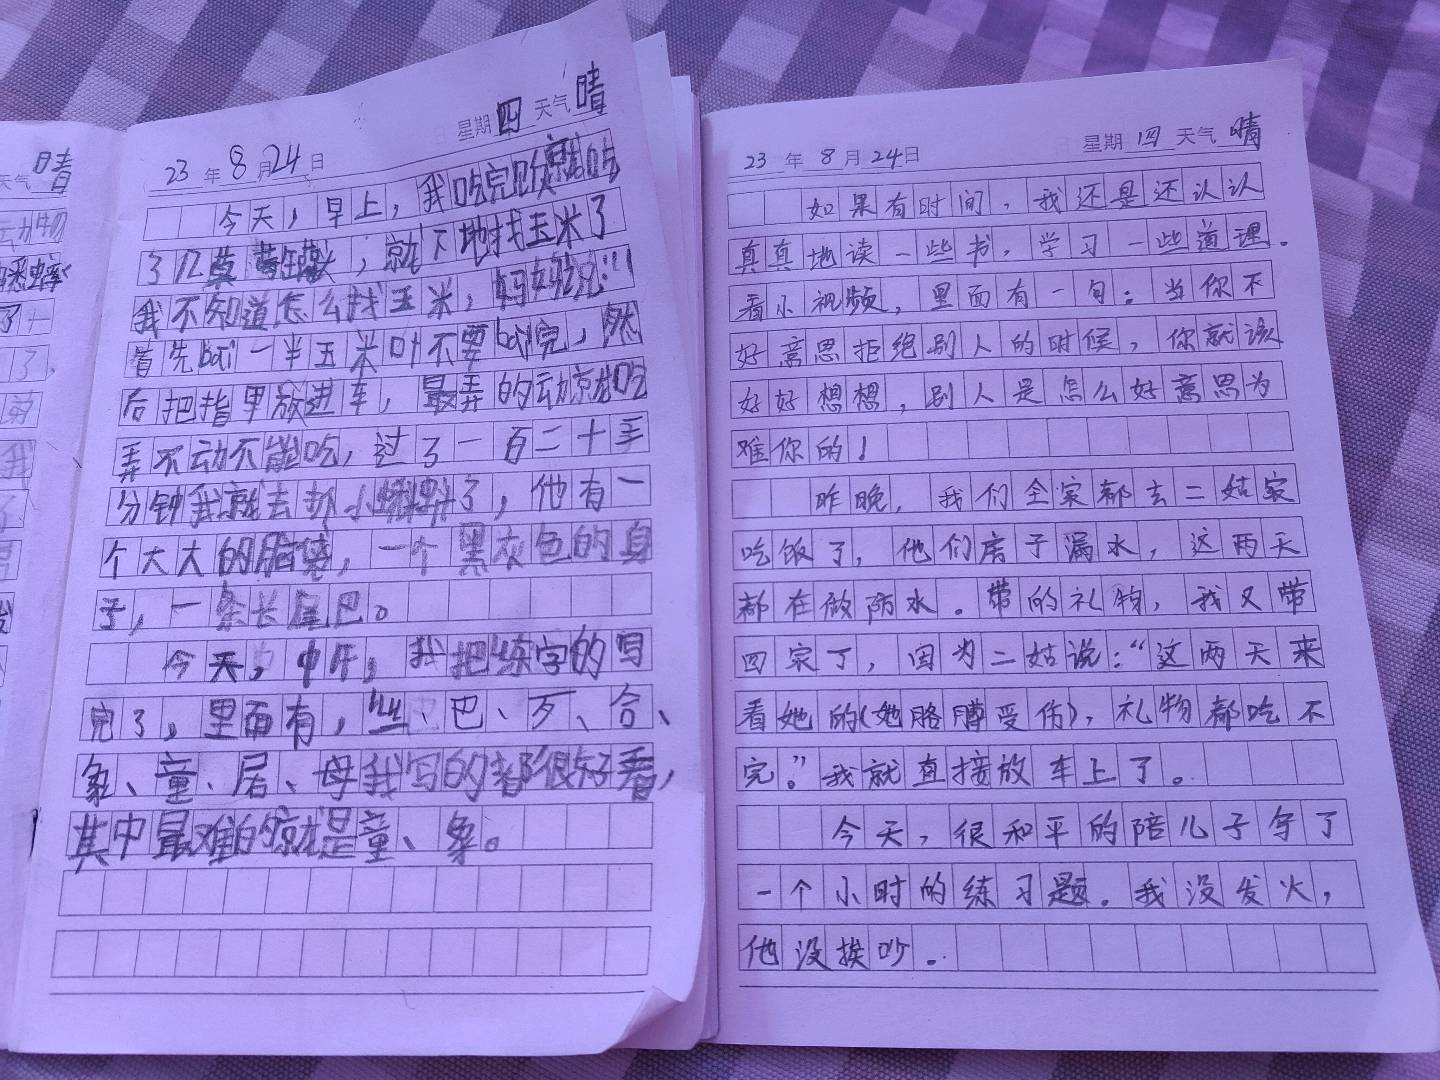 天气晴
23年8月24日 星期四 天气晴
今天,早上,我吃完饭就吃
了几草,就下地找玉米了
我不知道怎么找玉米,妈妈说:"
首先bāi一半玉米叶不要bāi完,然
后把指甲放进车,最弄的动就吃
弄不动不能吃,过了一百二十手
分钟我就去抓小蝌蚪了,他有一
个大大的脑袋,一个黑灰色的身
子,一条长尾巴。
今天,中午,我把练字的写
完了,里面有,丝、巴、歹、合、
象、童、居、母我写的都很好看,
其中最难的就是童、象。
23年8月24日 星期四 天气晴
如果有时间,我还是还认认
真真地读一些书,学习一些道理。
看小视频,里面有一句:当你不
好意思拒绝别人的时候,你就该
好好想想,别人是怎么好意思为
难你的!
昨晚,我们全家都去二姑家
吃饭了,他们房子漏水,这两天
都在做防水。带的礼物,我又带
回家了,因为二姑说:“这两天来
看她的(她胳膊受伤),礼物都吃不
完。”我就直接放车上了。
今天,很和平的陪儿子写了
一个小时的练习题。我没发火,
他没挨吵。